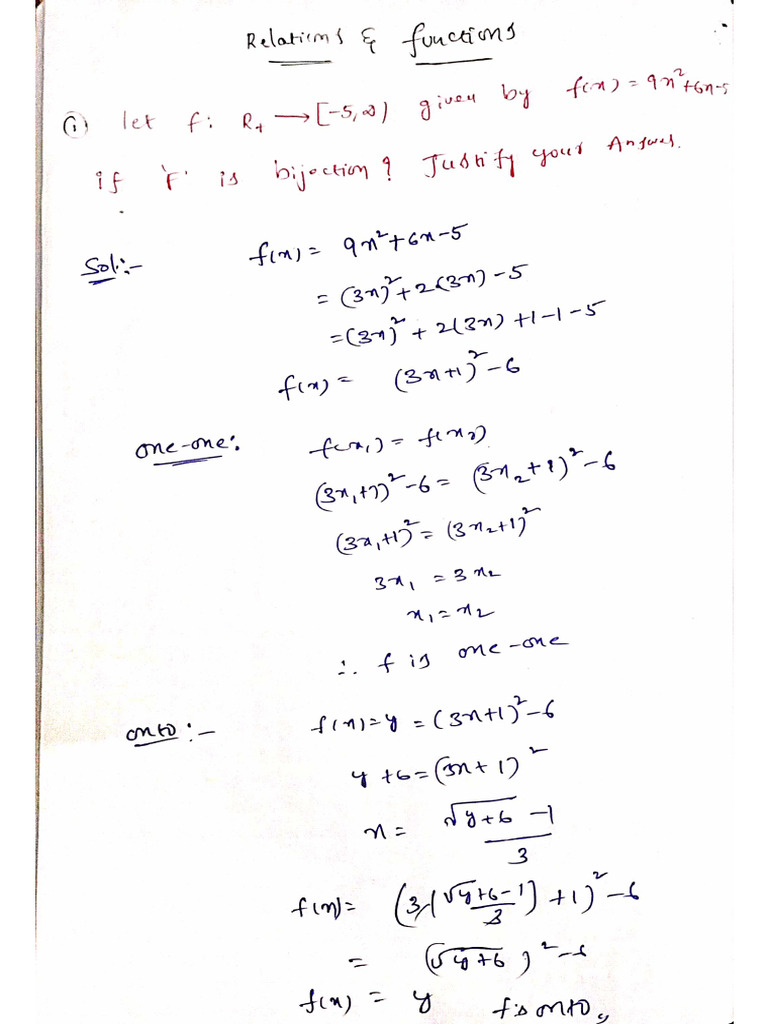 Relations & functions
① let f: R₊ → [-5,∞) given by f(x) = 9x²+6x-5
if 'F' is bijection? Justify your Answer.
Sol:- f(x) = 9x²+6x-5
= (3x)²+2(3x)-5
=(3x)²+2(3x)+1-1-5
f(x) = (3x+1)²-6
one-one: f(x₁) = f(x₂)
(3x₁+1)²-6 = (3x₂+1)²-6
(3x₁+1)² = (3x₂+1)²
3x₁ = 3x₂
x₁ = x₂
∴ f is one-one
onto:- f(x)=y = (3x+1)²-6
y+6=(3x+1)²
x = (√y+6 -1)/3
f(x)= (3(√y+6-1)/3)+1)²-6
= (√y+6)²-6
f(x) = y f is onto,